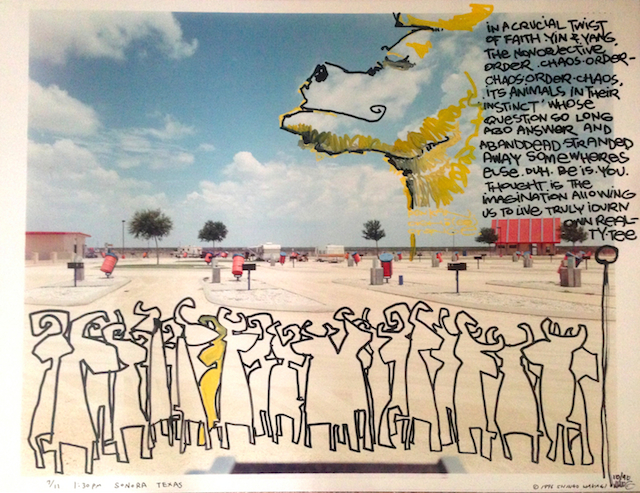 IN A CRUCIAL TWIST
OF FAITH·YIN & YANG,
THE NONOBJECTIVE
ORDER. CHAOS·ORDER-
CHAOS·ORDER·CHAOS,
ITS ANIMALS IN THEIR
'INSTINCT' WHOSE
QUESTION SO LONG
AGO ANSWER AND
ABANDDEAD STRANDED
AWAY SOMEWHERES
ELSE. DUH. BE IS. YOU.
THOUGHT IS THE
IMAGINATION ALLOWING
US TO LIVE TRULY IOURN
OWN REAL-
TY·TEE
7/11 1:30PM SONORA TEXAS
© 1996
10/96